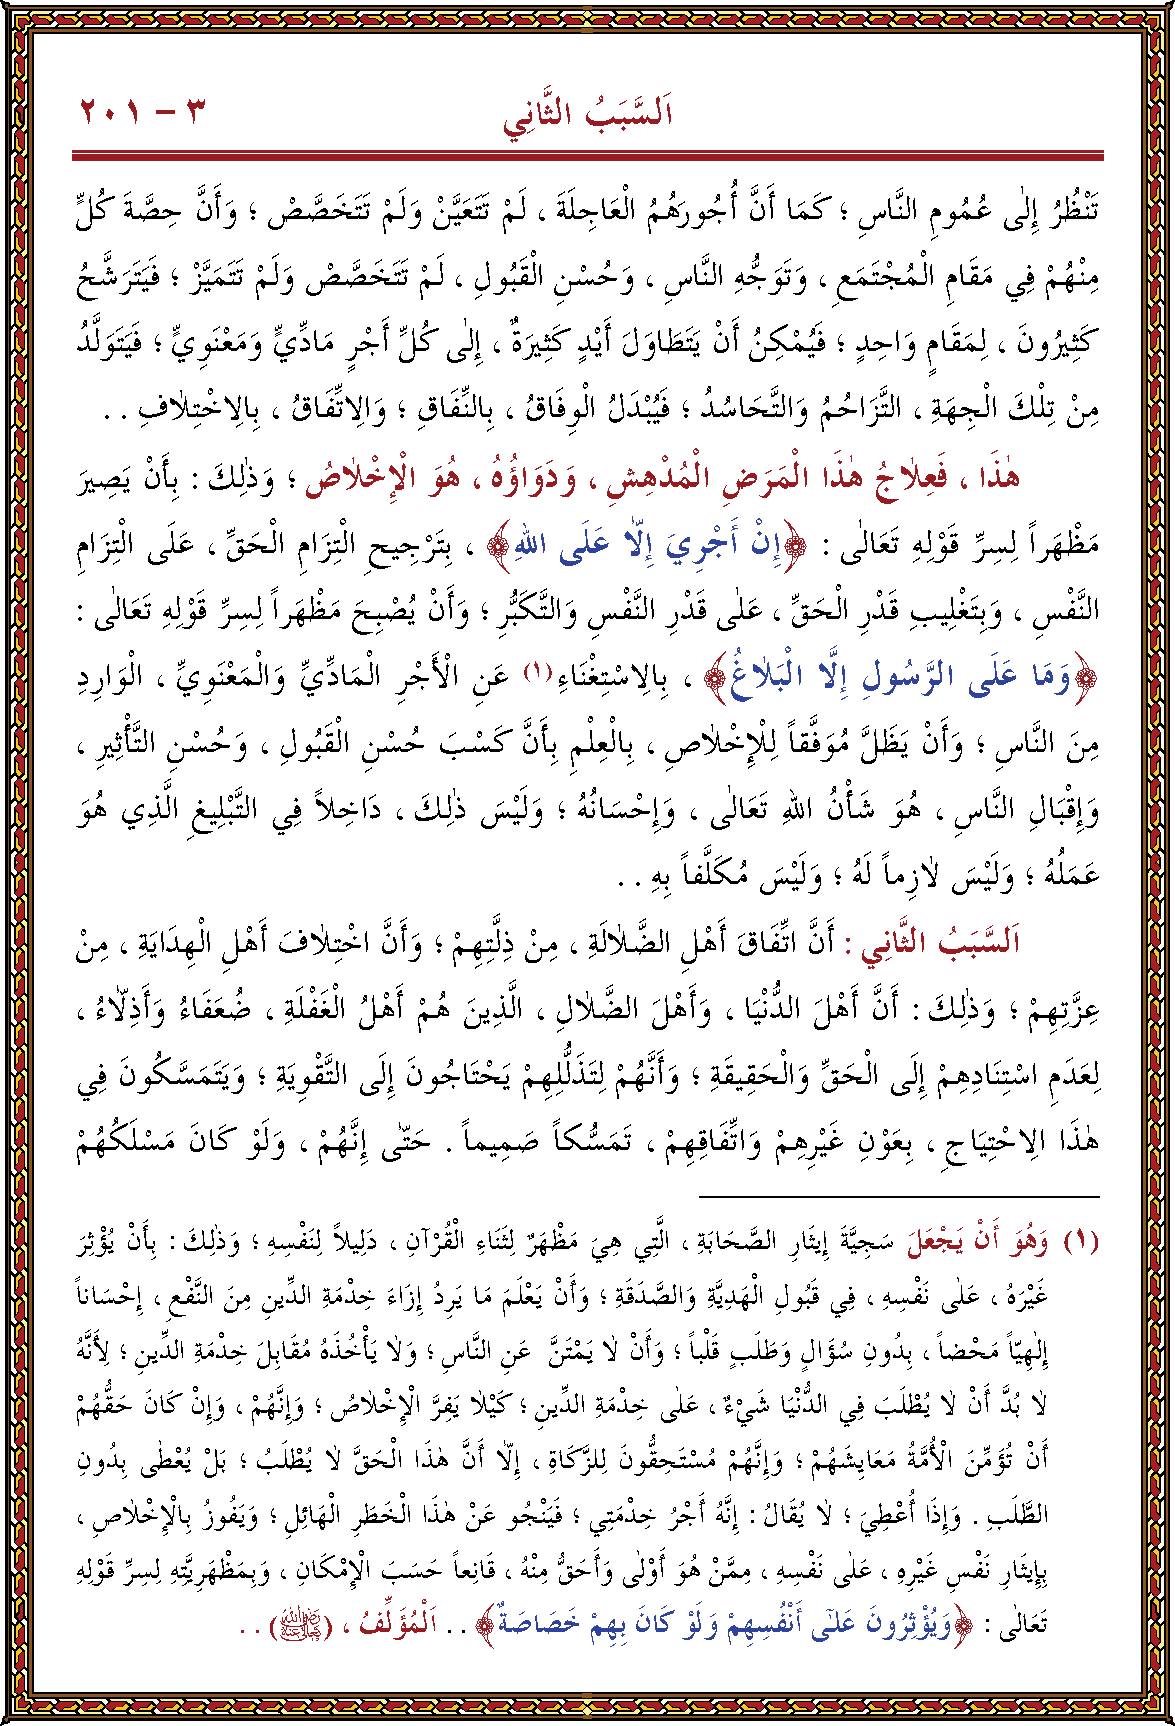 اَلسَّبَبُ الثَّانِي ٣ – ٢٠١
تَنْظُرُ إِلٰى عُمُومِ النَّاسِ ؛ كَمَا أَنَّ أُجُورَهُمُ الْعَاجِلَةَ ، لَمْ تَتَعَيَّنْ وَلَمْ تَتَخَصَّصْ ؛ وَأَنَّ حِصَّةَ كُلٍّ
مِنْهُمْ فِي مَقَامِ الْمُجْتَمَعِ ، وَتَوَجُّهِ النَّاسِ ، وَحُسْنِ الْقُبُولِ ، لَمْ تَتَخَصَّصْ وَلَمْ تَتَمَيَّزْ ؛ فَيَتَرَشَّحُ
كَثِيرُونَ ، لِمَقَامٍ وَاحِدٍ ؛ فَيُمْكِنُ أَنْ يَتَطَاوَلَ أَيْدٍ كَثِيرَةٌ ، إِلٰى كُلِّ أَجْرٍ مَادِّيٍّ وَمَعْنَوِيٍّ ؛ فَيَتَوَلَّدُ
مِنْ تِلْكَ الْجِهَةِ ، التَّزَاحُمُ وَالتَّحَاسُدُ ؛ فَيُبْدَلُ الْوِفَاقُ ، بِالنِّفَاقِ ؛ وَالِاتِّفَاقُ ، بِالِاخْتِلاٰفِ . .
هٰذَا ، فَعِلاٰجُ هٰذَا الْمَرَضِ الْمُدْهِشِ ، وَدَوَاؤُهُ ، هُوَ الْإِخْلاٰصُ ؛ وَذٰلِكَ : بِأَنْ يَصِيرَ
مَظْهَراً لِسِرِّ قَوْلِهِ تَعَالٰى : ﴿إِنْ أَجْرِيَ إِلاّٰ عَلَى اللهِ﴾ ، بِتَرْجِيحِ الْتِزَامِ الْحَقِّ ، عَلَى الْتِزَامِ
النَّفْسِ ، وَبِتَغْلِيبِ قَدْرِ الْحَقِّ ، عَلٰى قَدْرِ النَّفْسِ وَالتَّكَبُّرِ ؛ وَأَنْ يُصْبِحَ مَظْهَراً لِسِرِّ قَوْلِهِ تَعَالٰى :
﴿وَمَا عَلَى الرَّسُولِ إِلَّا الْبَلاٰغُ﴾ ، بِالِاسْتِغْنَاءِ(١) عَنِ الْأَجْرِ الْمَادِّيِّ وَالْمَعْنَوِيِّ ، الْوَارِدِ
مِنَ النَّاسِ ؛ وَأَنْ يَظَلَّ مُوَفَّقاً لِلْإِخْلاٰصِ ، بِالْعِلْمِ بِأَنَّ كَسْبَ حُسْنِ الْقُبُولِ ، وَحُسْنِ التَّأْثِيرِ ،
وَإِقْبَالِ النَّاسِ ، هُوَ شَأْنُ اللهِ تَعَالٰى ، وَإِحْسَانُهُ ؛ وَلَيْسَ ذٰلِكَ ، دَاخِلاً فِي التَّبْلِيغِ الَّذِي هُوَ
عَمَلُهُ ؛ وَلَيْسَ لاٰزِماً لَهُ ؛ وَلَيْسَ مُكَلَّفاً بِهِ . .
اَلسَّبَبُ الثَّانِي : أَنَّ اتِّفَاقَ أَهْلِ الضَّلاٰلَةِ ، مِنْ ذِلَّتِهِمْ ؛ وَأَنَّ اخْتِلاٰفَ أَهْلِ الْهِدَايَةِ ، مِنْ
عِزَّتِهِمْ ؛ وَذٰلِكَ : أَنَّ أَهْلَ الدُّنْيَا ، وَأَهْلَ الضَّلاٰلِ ، الَّذِينَ هُمْ أَهْلُ الْغَفْلَةِ ، ضُعَفَاءُ وَأَذِلاّٰءُ ،
لِعَدَمِ اسْتِنَادِهِمْ إِلَى الْحَقِّ وَالْحَقِيقَةِ ؛ وَأَنَّهُمْ لِتَذَلُّلِهِمْ يَحْتَاجُونَ إِلَى التَّقْوِيَةِ ؛ وَيَتَمَسَّكُونَ فِي
هٰذَا الِاحْتِيَاجِ ، بِعَوْنِ غَيْرِهِمْ وَاتِّفَاقِهِمْ ، تَمَسُّكاً صَمِيماً . حَتّٰى إِنَّهُمْ ، وَلَوْ كَانَ مَسْلَكُهُمْ
(١) وَهُوَ أَنْ يَجْعَلَ سَجِيَّةَ إِيثَارِ الصَّحَابَةِ ، الَّتِي هِيَ مَظْهَرٌ لِثَنَاءِ الْقُرْآنِ ، دَلِيلاً لِنَفْسِهِ ؛ وَذٰلِكَ : بِأَنْ يُؤْثِرَ
غَيْرَهُ ، عَلٰى نَفْسِهِ ، فِي قَبُولِ الْهَدِيَّةِ وَالصَّدَقَةِ ؛ وَأَنْ يَعْلَمَ مَا يَرِدُ إِزَاءَ خِدْمَةِ الدِّينِ مِنَ النَّفْعِ ، إِحْسَاناً
إِلٰهِيّاً مَحْضاً ، بِدُونِ سُؤَالٍ وَطَلَبٍ قَلْباً ؛ وَأَنْ لاٰ يَمْتَنَّ عَنِ النَّاسِ ؛ وَلاٰ يَأْخُذُهُ مُقَابِلَ خِدْمَةِ الدِّينِ ؛ لِأَنَّهُ
لاٰ بُدَّ أَنْ لاٰ يُطْلَبَ فِي الدُّنْيَا شَيْءٌ ، عَلٰى خِدْمَةِ الدِّينِ ؛ كَيْلاٰ يَفِرَّ الْإِخْلاٰصُ ؛ وَإِنَّهُمْ ، وَإِنْ كَانَ حَقُّهُمْ
أَنْ تُؤَمِّنَ الْأُمَّةُ مَعَايِشَهُمْ ؛ وَإِنَّهُمْ مُسْتَحِقُّونَ لِلزَّكَاةِ ، إِلاّٰ أَنَّ هٰذَا الْحَقَّ لاٰ يُطْلَبُ ؛ بَلْ يُعْطٰى بِدُونِ
الطَّلَبِ . وَإِذَا أُعْطِيَ ؛ لاٰ يُقَالُ : إِنَّهُ أَجْرُ خِدْمَتِي ؛ فَيَنْجُو عَنْ هٰذَا الْخَطَرِ الْهَائِلِ ؛ وَيَفُوزُ بِالْإِخْلاٰصِ ،
بِإِيثَارِ نَفْسِ غَيْرِهِ ، عَلٰى نَفْسِهِ ، مِمَّنْ هُوَ أَوْلٰى وَأَحَقُّ مِنْهُ ، قَانِعاً حَسَبَ الْإِمْكَانِ ، وَبِمَظْهَرِيَّتِهِ لِسِرِّ قَوْلِهِ
تَعَالٰى : ﴿وَيُؤْثِرُونَ عَلٰٓى أَنْفُسِهِمْ وَلَوْ كَانَ بِهِمْ خَصَاصَةٌ﴾ . . اَلْمُؤَلِّفُ ، (رضي الله عنه) . .